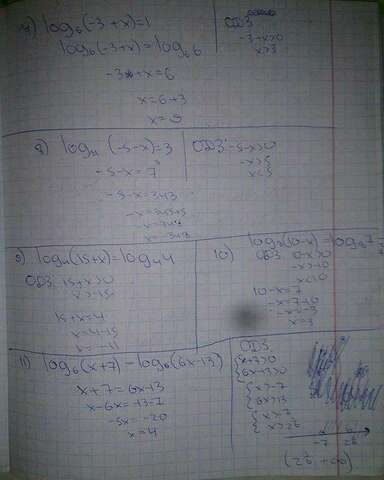 7) log₆(-3+x)=1
log₆(-3+x)=log₆6
-3+x=6
x=6+3
x=9
ODЗ
-3+x>0
x>3
8) log (-5-x)=3
-5-x=7³
-5-x=343
-x=343+5
ODЗ: -5-x>0
-x>5
x<5
9) log₄(15+x)=log₄4
ODЗ: 15+x>0
x>-15
15+x=4
x=4-15
x=-11
10) log₂(10-x)=log₂7
ODЗ: 10-x>0
-x>-10
x<10
10-x=7
-x=7-10
-x=-3
x=3
11) log₆(x+7)-log₆(6x-13)
x+7=6x-13
x-6x=-13-7
-5x=-20
x=4
ODЗ
x+7>0
6x-13>0
x>-7
6x>13
x>-7
-7